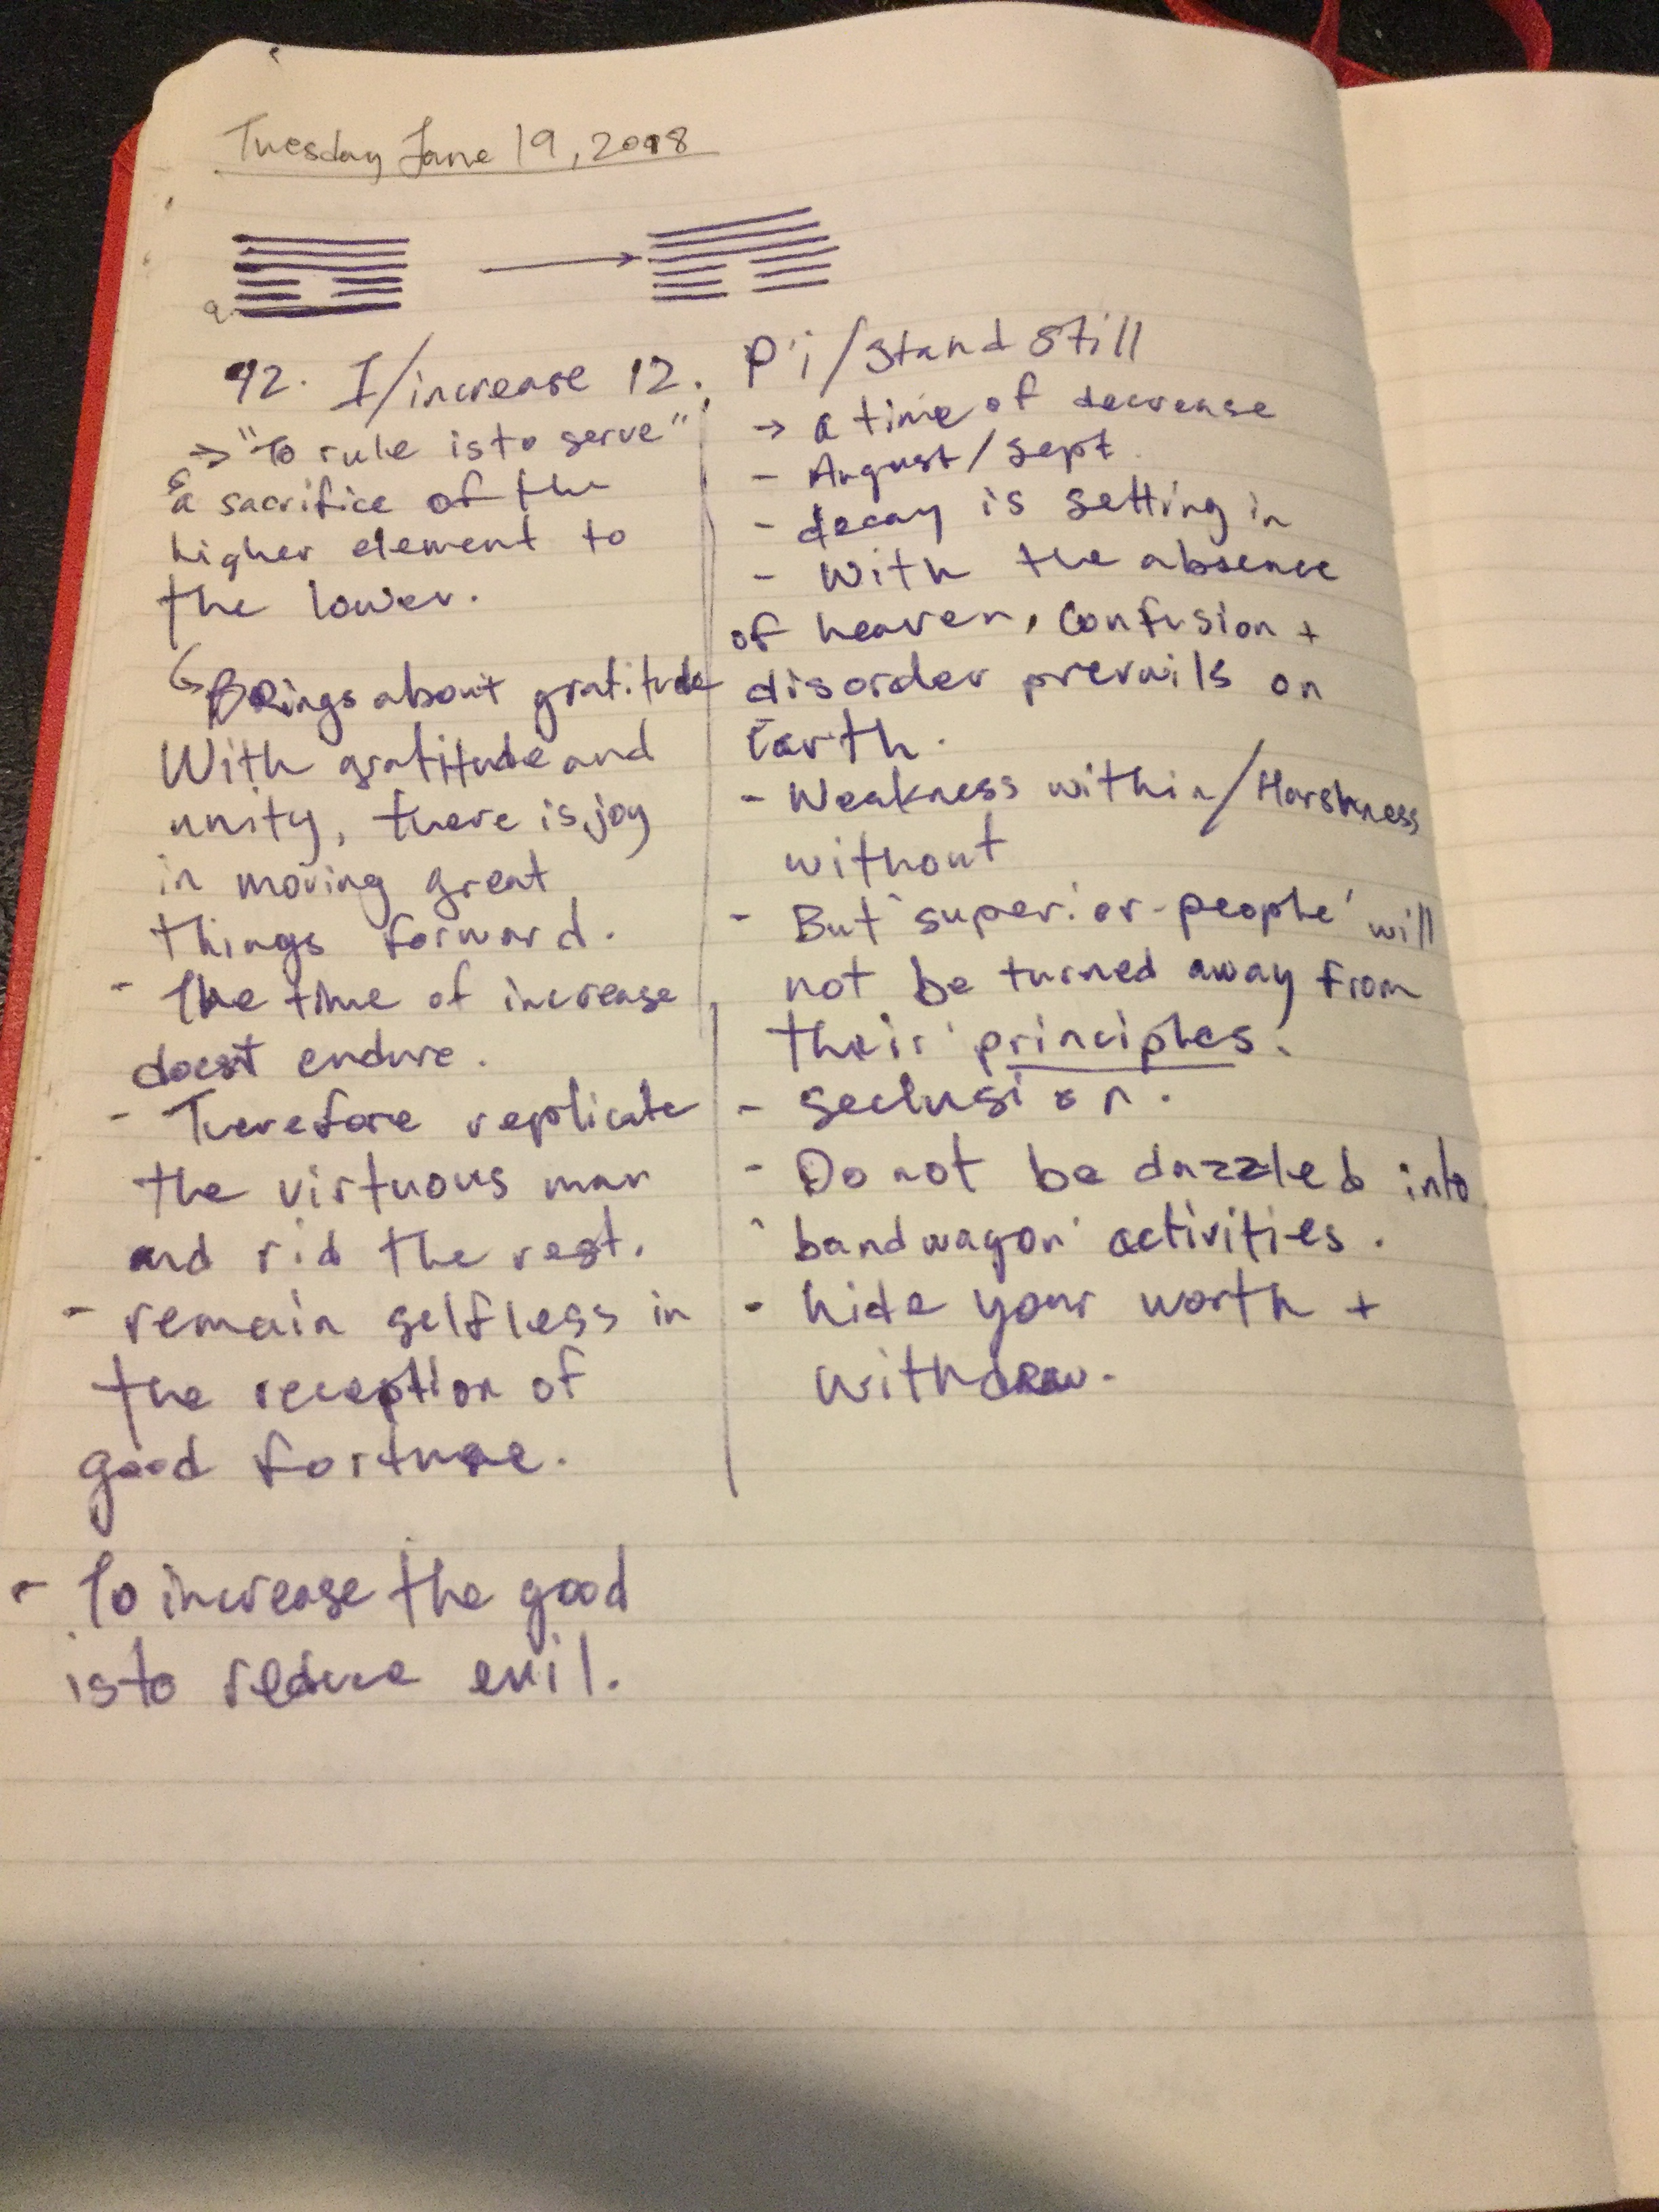 Tuesday June 19, 2018
9
42. I/increase
→ "To rule is to serve"
↳ a sacrifice of the
higher element to
the lower.
↳ Brings about gratitude
With gratitude and
unity, there is joy
in moving great
things forward.
- The time of increase
doesn't endure.
- Therefore replicate
the virtuous man
and rid the rest.
- remain selfless in
the reception of
good fortune.
- To increase the good
is to reduce evil.
12. P'i/Stand Still
→ a time of decrease
- August/Sept.
- decay is setting in
- With the absence
of heaven, confusion +
disorder prevails on
Earth.
- Weakness within/Harshness
without
- But 'superior-people' will
not be turned away from
their principles.
- Seclusion.
- Do not be dazzled into
'bandwagon' activities.
- hide your worth +
withdraw.